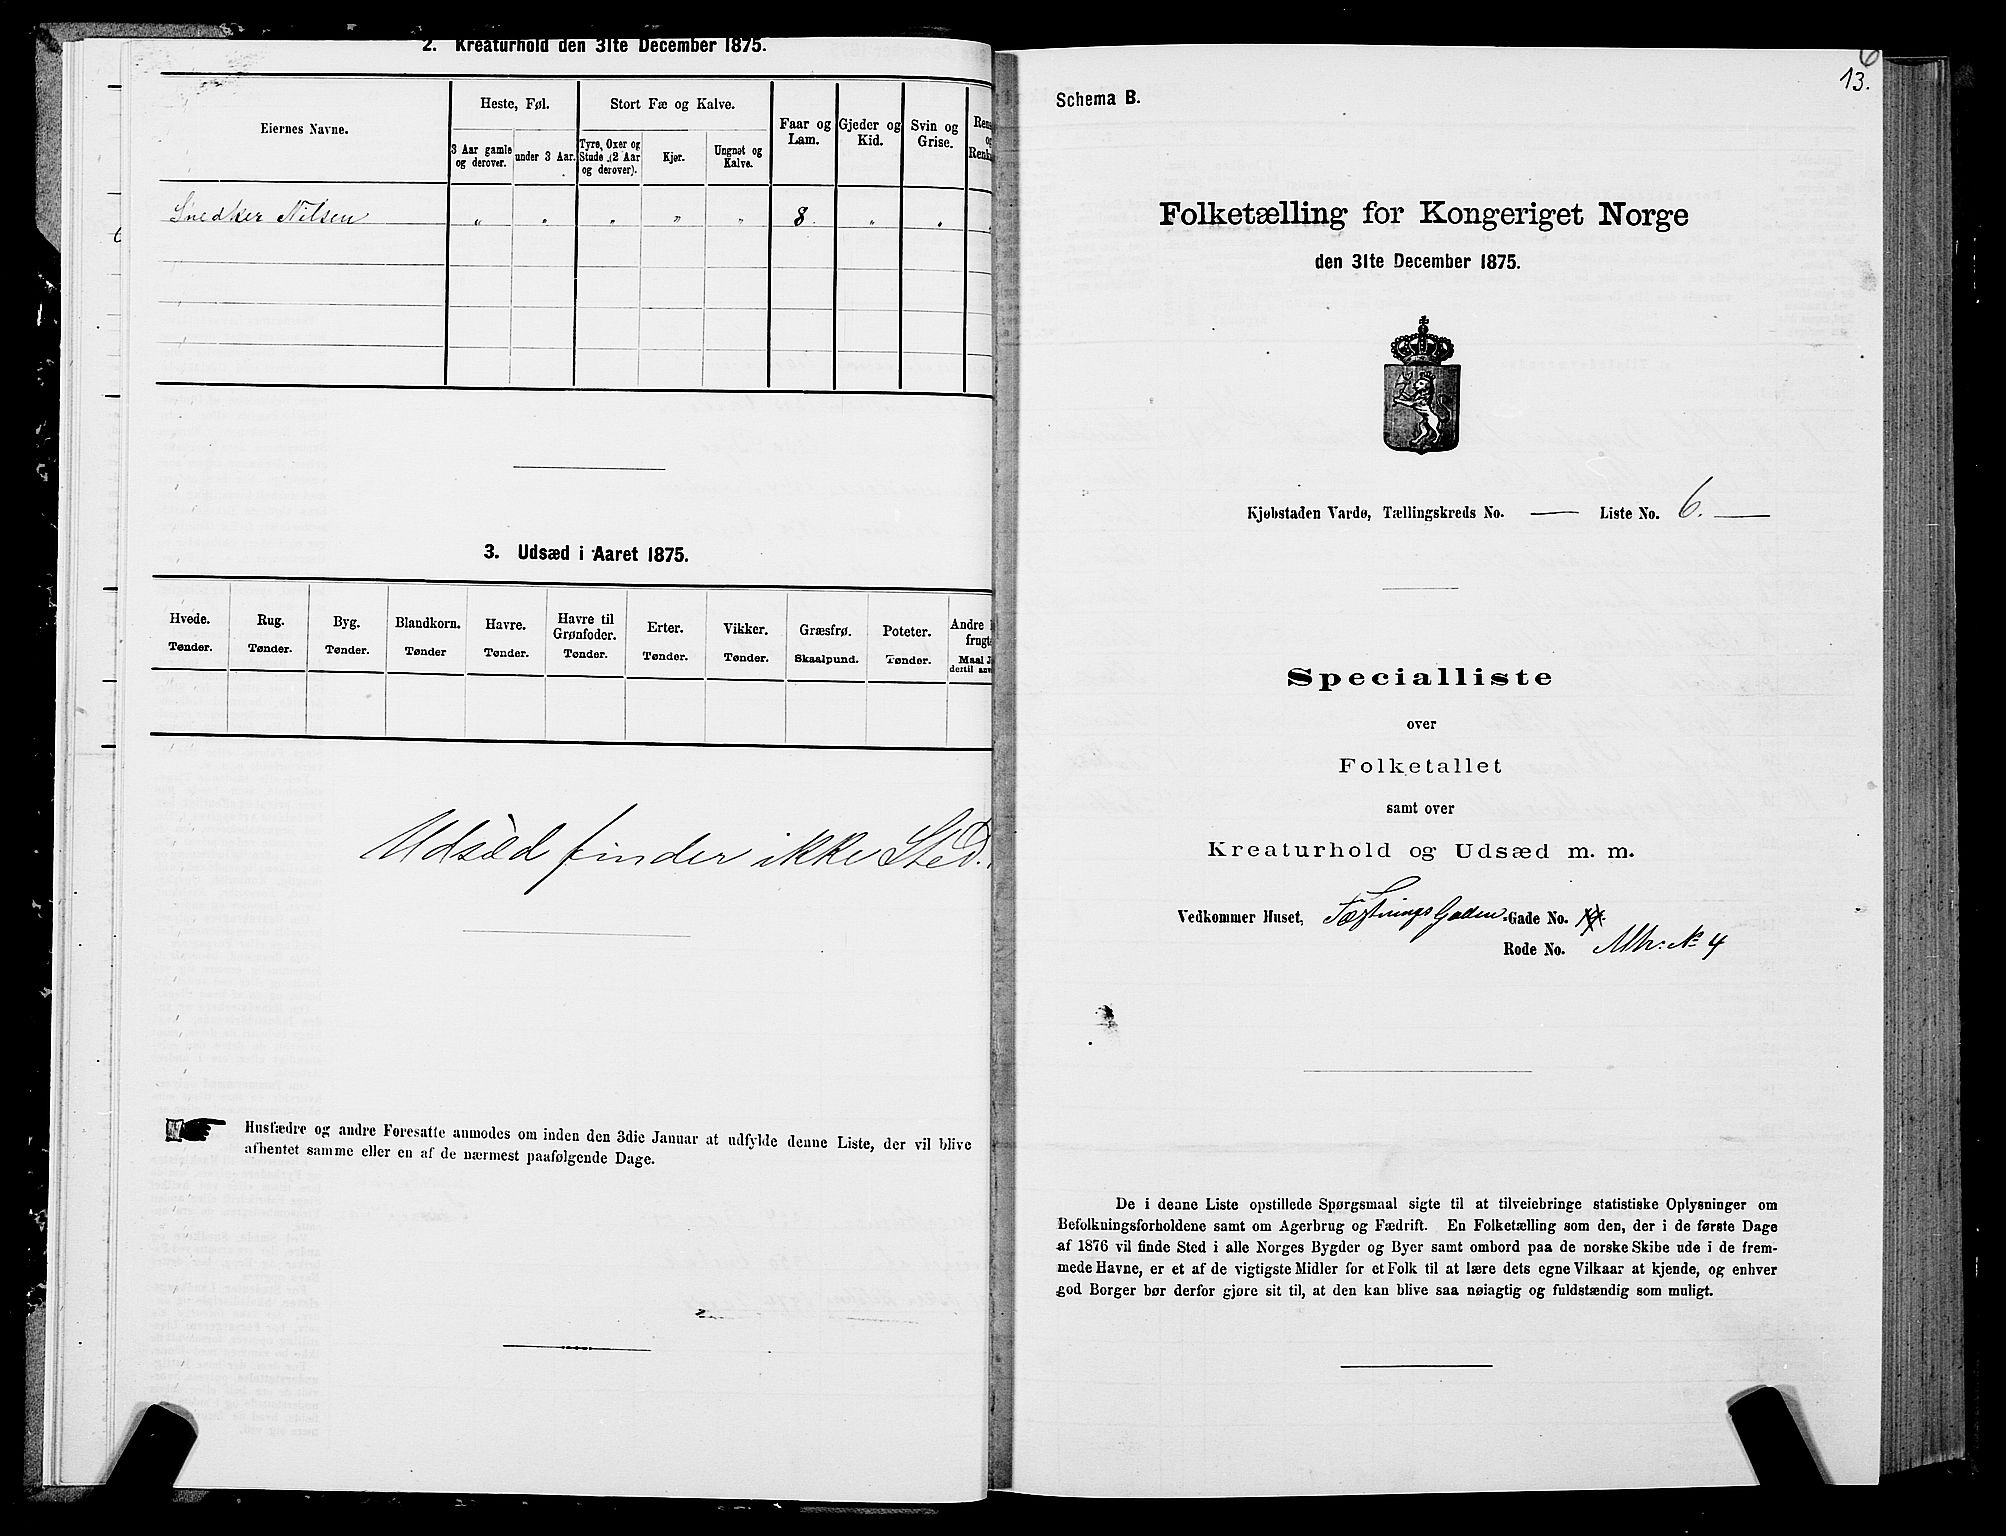 2. Kreaturhold den 31te December 1875.
Eiernes Navne.
Heste, Føl.
3 Aar gamle og derover.
under 3 Aar.
Stort Fæ og Kalve.
Tyre, Oxer og Stude (2 Aar og derover).
Kjør.
Ungnøt og Kalve.
Faar og Lam.
Gjeder og Kid.
Svin og Grise.
Snedker Nilsen " " " " " 8. " "
3. Udsæd i Aaret 1875.
Hvede. Rug. Byg. Blandkorn. Havre. Havre til Grønfoder. Erter. Vikker. Græsfrø. Poteter. Andre
Tønder. Tønder. Tønder. Tønder Tønder. Tønder. Tønder. Tønder. Skaalpund. Tønder. Maal
Udsæd finder ikke Sted.
Husfædre og andre Foresatte anmodes om inden den 3die Januar at udfylde denne Liste, der vil blive
afhentet samme eller en af de nærmest paafølgende Dage.
6
13.
Schema B.
Folketælling for Kongeriget Norge
den 31te December 1875.
Kjøbstaden Vardø, Tællingskreds No. — Liste No. 6. —
Specialliste
over
Folketallet
samt over
Kreaturhold og Udsæd m. m.
Vedkommer Huset, Fæstnings Gaden-Gade No.
Rode No. Mtr: No 4
De i denne Liste opstillede Spørgsmaal sigte til at tilveiebringe statistiske Oplysninger om
Befolkningsforholdene samt om Agerbrug og Fædrift. En Folketælling som den, der i de første Dage
af 1876 vil finde Sted i alle Norges Bygder og Byer samt ombord paa de norske Skibe ude i de frem-
mede Havne, er et af de vigtigste Midler for et Folk til at lære dets egne Vilkaar at kjende, og enhver
god Borger bør derfor gjøre sit til, at den kan blive saa nøiagtig og fuldstændig som muligt.